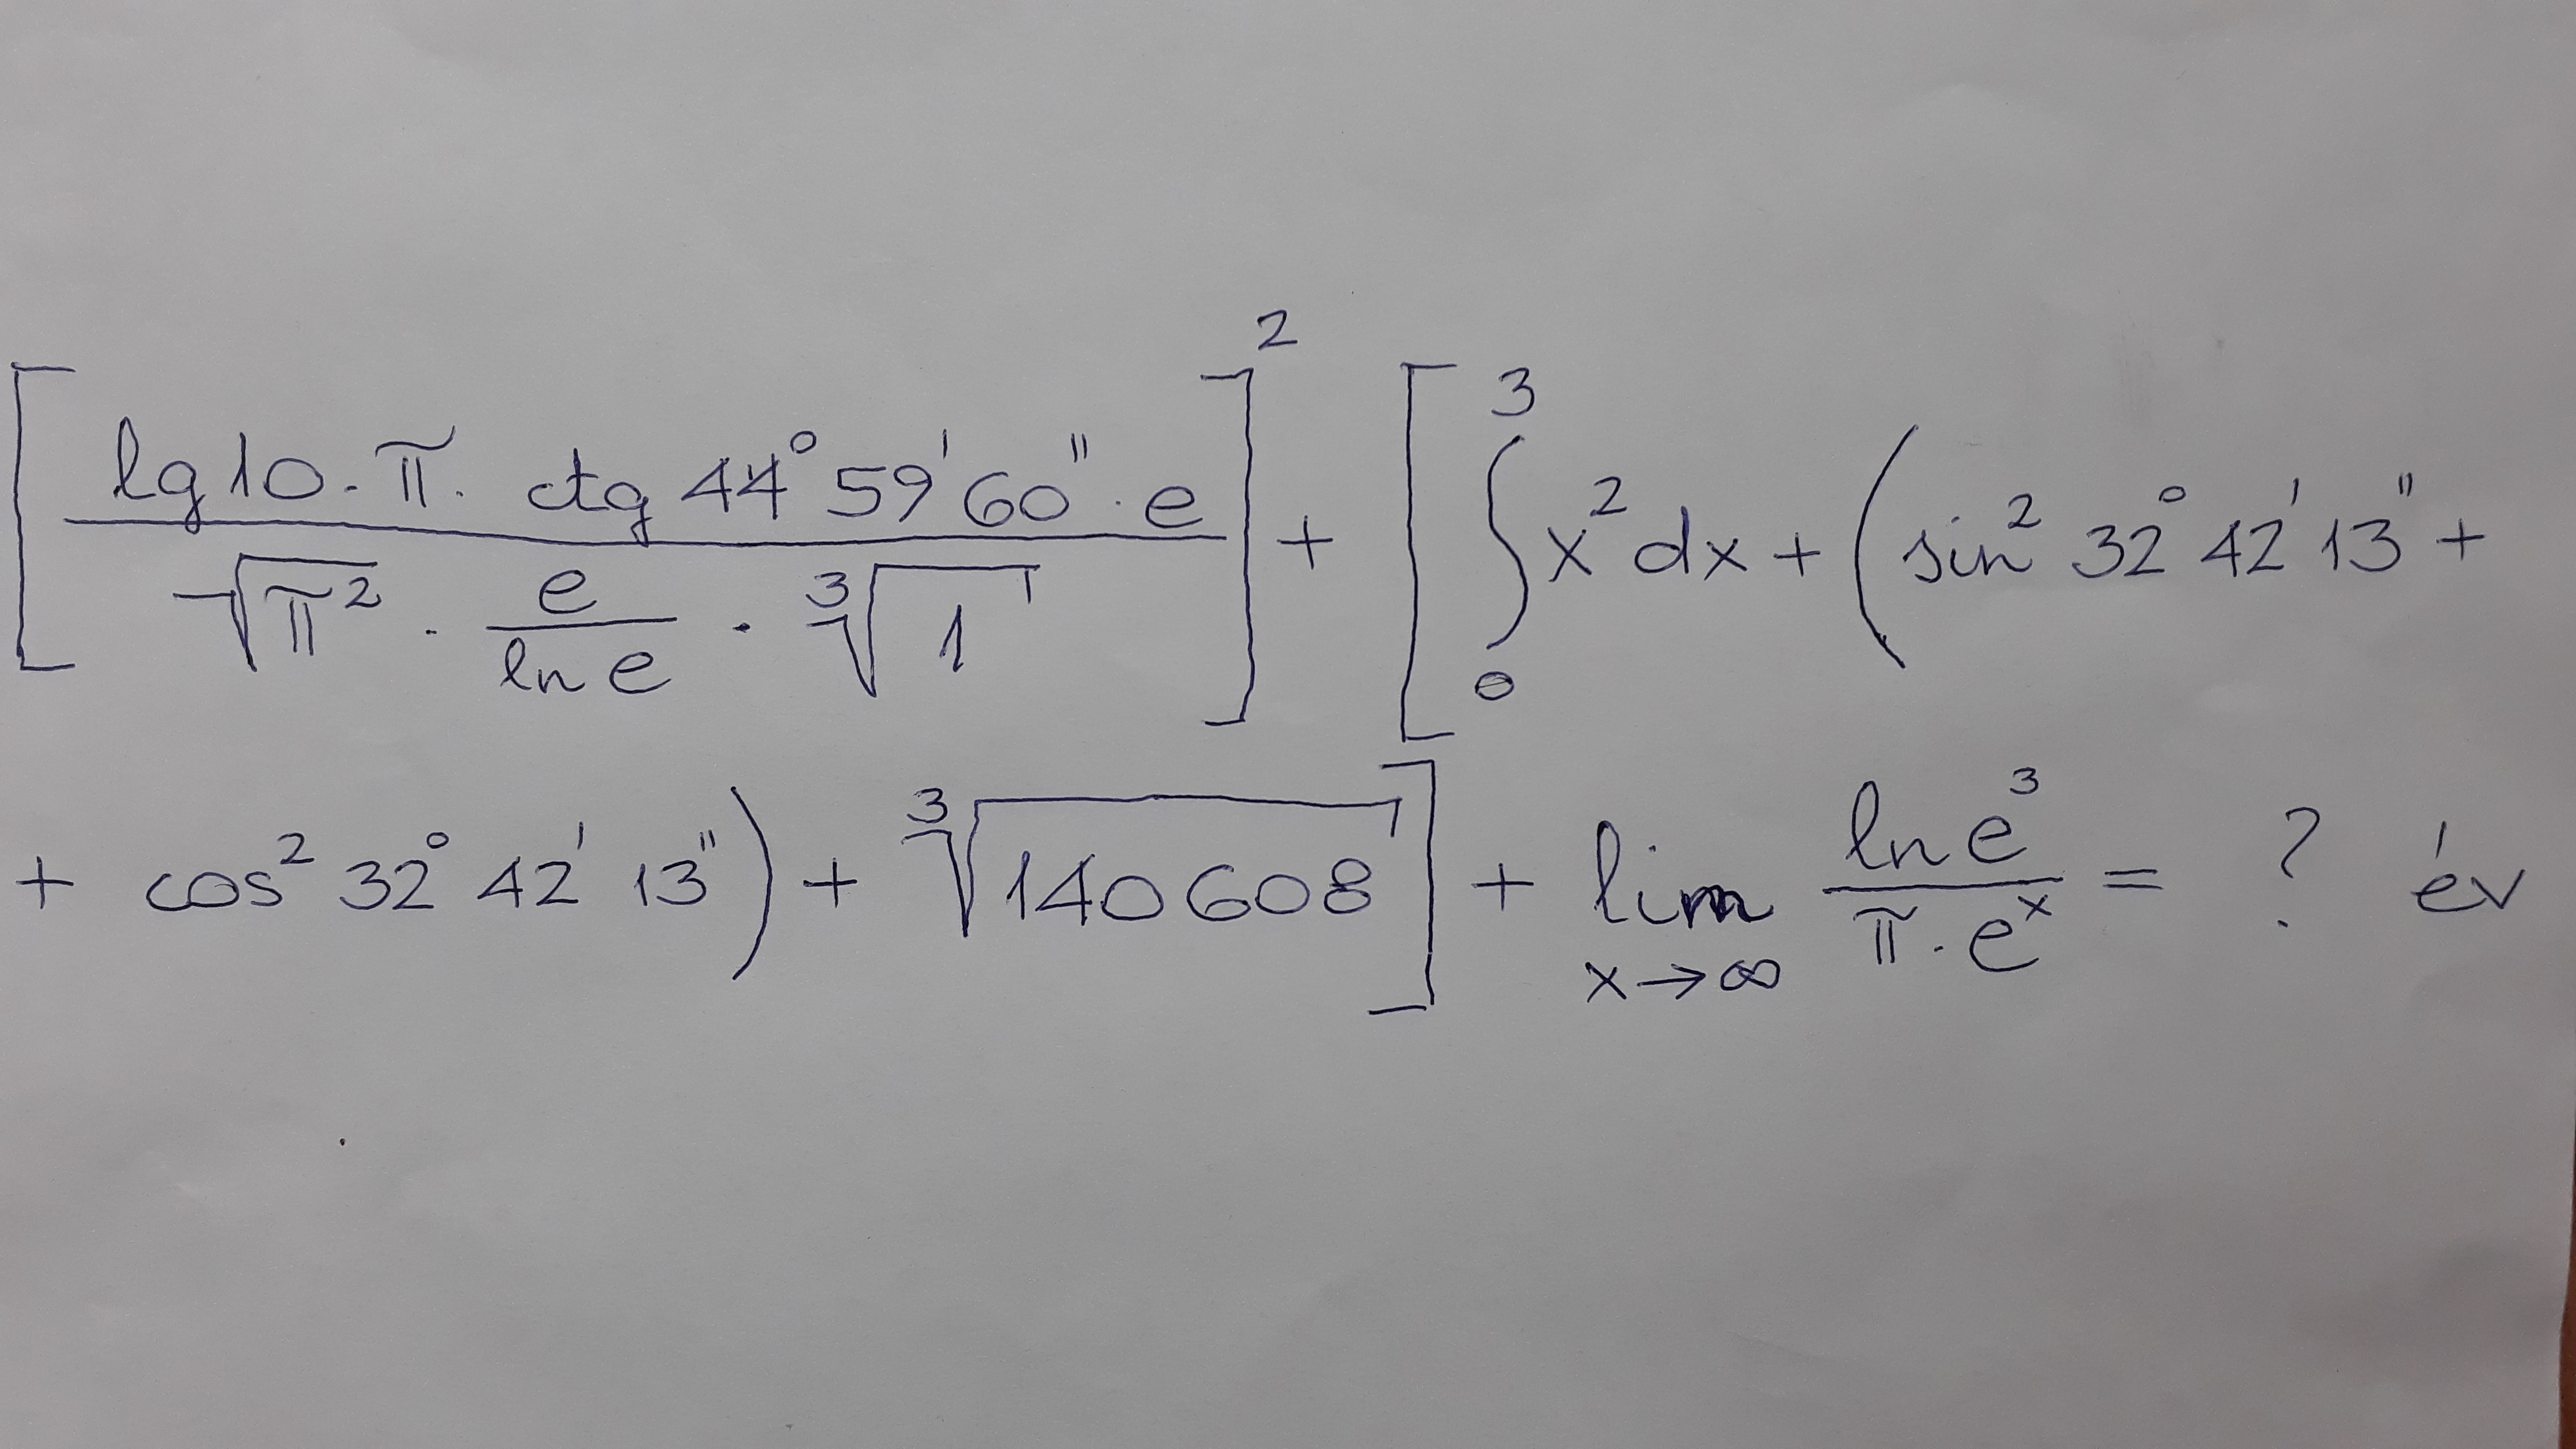 [(lg10·π·ctg 44°59'60''·e)/(√π²·(e/ln e)·³√1)]² + [∫₀³ x²dx + (sin² 32°42'13'' +
+ cos² 32°42'13'') + ³√140608] + lim x→∞ (ln e³)/(π·eˣ) = ? év